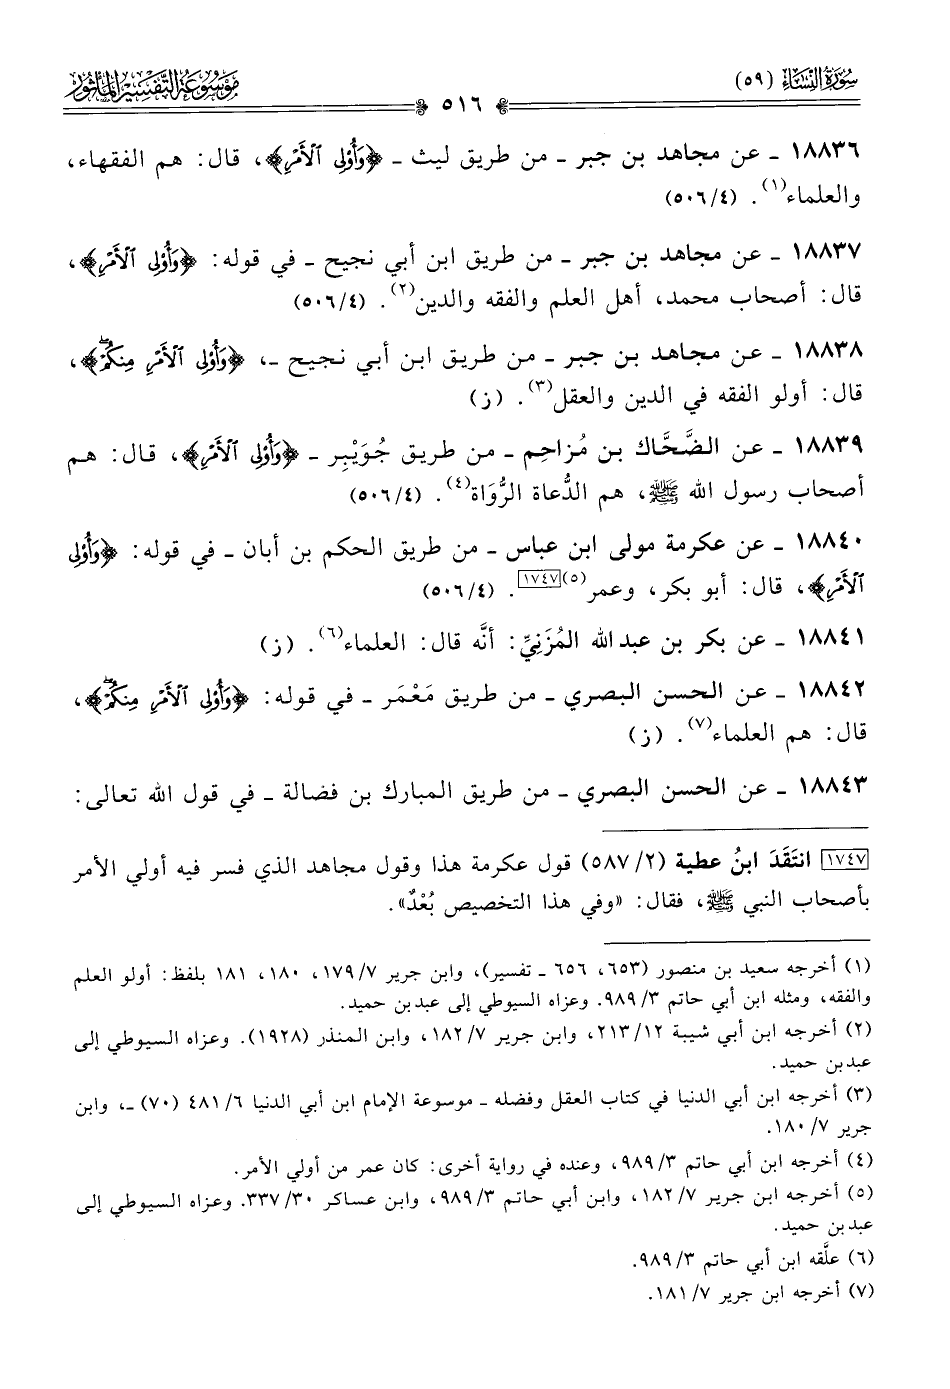 سُورَةُ النِّسَاءِ (٥٩)
٥١٦
مَوْسُوعَةُ التَّفْسِيرِ المَأْثُور
١٨٨٣٦ ـ عن مجاهد بن جبر ـ من طريق ليث ـ ﴿وَأُوْلِى ٱلْأَمْرِ﴾، قال: هم الفقهاء،
والعلماء(١). (٥٠٦/٤)
١٨٨٣٧ ـ عن مجاهد بن جبر ـ من طريق ابن أبي نجيح ـ في قوله: ﴿وَأُوْلِى ٱلْأَمْرِ﴾،
قال: أصحاب محمد، أهل العلم والفقه والدين(٢). (٥٠٦/٤)
١٨٨٣٨ ـ عن مجاهد بن جبر ـ من طريق ابن أبي نجيح ـ، ﴿وَأُوْلِى ٱلْأَمْرِ مِنكُمْۖ﴾،
قال: أولو الفقه في الدين والعقل(٣). (ز)
١٨٨٣٩ ـ عن الضَّحَّاك بن مُزاحِم ـ من طريق جُوَيْبِر ـ ﴿وَأُوْلِى ٱلْأَمْرِ﴾، قال: هم
أصحاب رسول الله ﷺ، هم الدُّعاة الرُّوَاة(٤). (٥٠٦/٤)
١٨٨٤٠ ـ عن عكرمة مولى ابن عباس ـ من طريق الحكم بن أبان ـ في قوله: ﴿وَأُوْلِى
ٱلْأَمْرِ﴾، قال: أبو بكر، وعمر(٥)[١٧٤٧]. (٥٠٦/٤)
١٨٨٤١ ـ عن بكر بن عبد الله المُزَنِيِّ: أنَّه قال: العلماء(٦). (ز)
١٨٨٤٢ ـ عن الحسن البصري ـ من طريق مَعْمَر ـ في قوله: ﴿وَأُوْلِى ٱلْأَمْرِ مِنكُمْۖ﴾،
قال: هم العلماء(٧). (ز)
١٨٨٤٣ ـ عن الحسن البصري ـ من طريق المبارك بن فضالة ـ في قول الله تعالى:
[١٧٤٧] انتَقَدَ ابنُ عطية (٥٨٧/٢) قول عكرمة هذا وقول مجاهد الذي فسر فيه أولي الأمر
بأصحاب النبي ﷺ، فقال: «وفي هذا التخصيص بُعْدٌ».
(١) أخرجه سعيد بن منصور (٦٥٣، ٦٥٦ ـ تفسير)، وابن جرير ٧/ ١٧٩، ١٨٠، ١٨١ بلفظ: أولو العلم
والفقه، ومثله ابن أبي حاتم ٣/ ٩٨٩. وعزاه السيوطي إلى عبد بن حميد.
(٢) أخرجه ابن أبي شيبة ١٢/ ٢١٣، وابن جرير ٧/ ١٨٢، وابن المنذر (١٩٢٨). وعزاه السيوطي إلى
عبد بن حميد.
(٣) أخرجه ابن أبي الدنيا في كتاب العقل وفضله ـ موسوعة الإمام ابن أبي الدنيا ٦/ ٤٨١ (٧٠) ـ، وابن
جرير ٧/ ١٨٠.
(٤) أخرجه ابن أبي حاتم ٣/ ٩٨٩، وعنده في رواية أخرى: كان عمر من أولي الأمر.
(٥) أخرجه ابن جرير ٧/ ١٨٢، وابن أبي حاتم ٣/ ٩٨٩، وابن عساكر ٣٠/ ٣٣٧. وعزاه السيوطي إلى
عبد بن حميد.
(٦) علَّقه ابن أبي حاتم ٣/ ٩٨٩.
(٧) أخرجه ابن جرير ٧/ ١٨١.